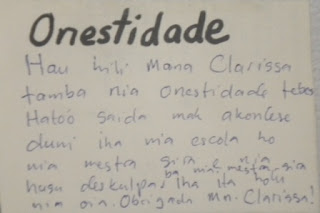 Onestidade
Hau hili Mana Clarissa
tamba nia Onestidade tebes
Hatoo saida mak akontese
duni iha nia escola ho
nia mestra sira
ba nia mestra sira
husu deskulpas iha ita hotu
nia oin. Obrigada Mn. Clarissa!